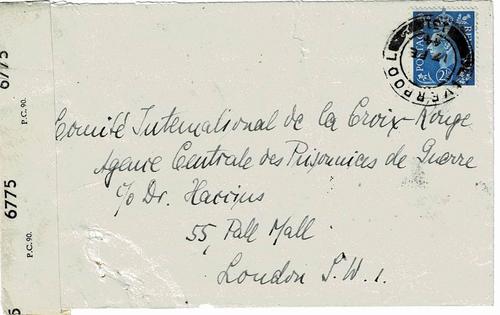 Comité International de la Croix-Rouge
Agence Centrale des Prisonniers de Guerre
c/o Dr. Haccius
55, Pall Mall
London S.W.1.
LIVERPOOL
POSTAGE
2½
P.C. 90.
6775
P.C. 90.
6775